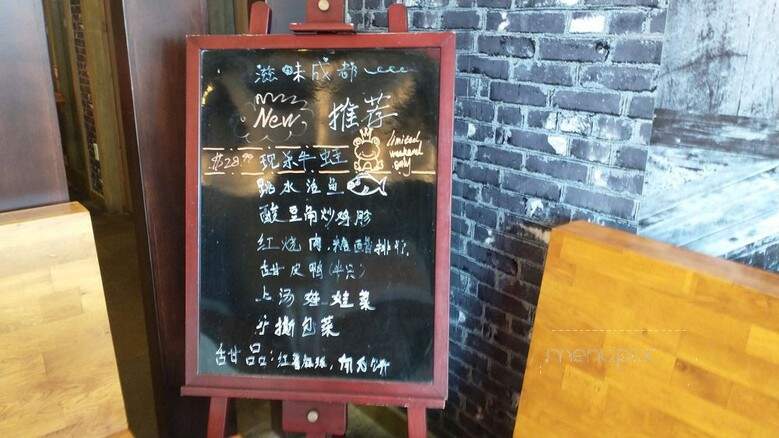 滋味成都
New 推荐
$28.99 现杀牛蛙
limited weekend only
跳水活鱼
酸豆角炒鸡胗
红烧肉.糖醋排骨.
甜皮鸭(半只)
上汤娃娃菜
手撕包菜
甜品:红薯
menupix